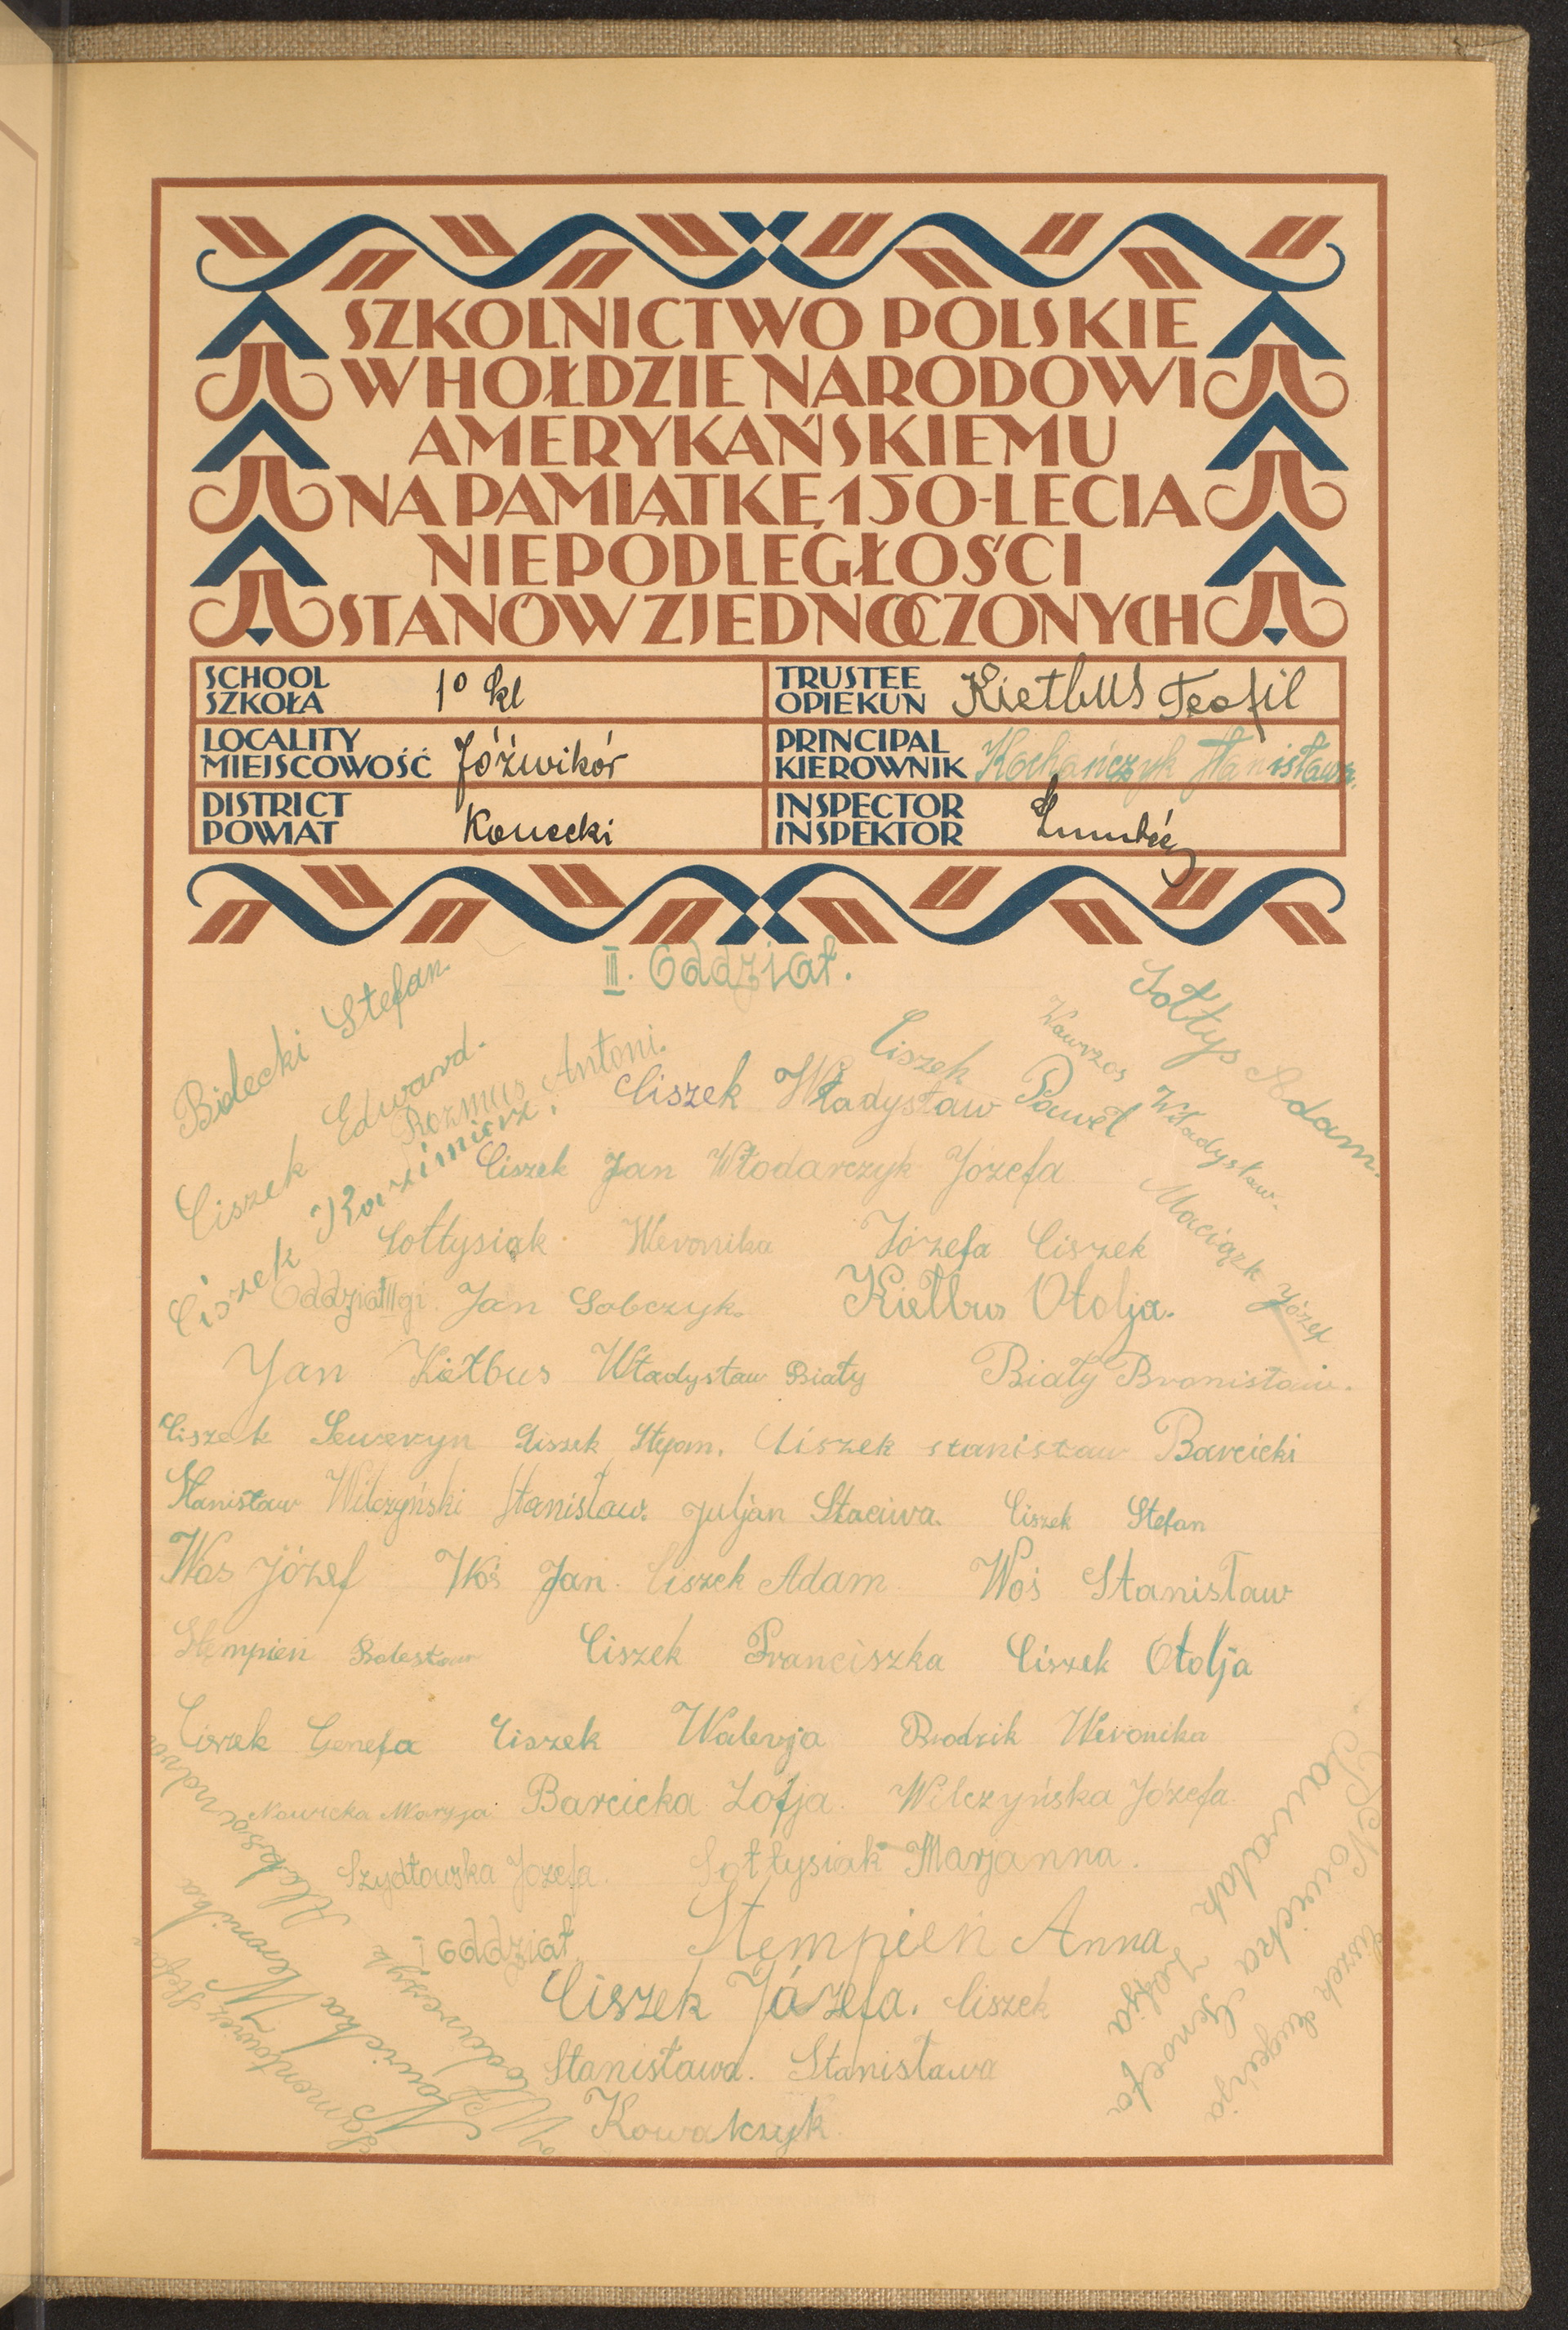 SZKOLNICTWO POLSKIE
W HOŁDZIE NARODOWI
AMERYKAŃSKIEMU
NA PAMIĄTKĘ 150-LECIA
NIEPODLEGŁOŚCI
STANÓW ZJEDNOCZONYCH
SCHOOL
SZKOŁA 10 kl
TRUSTEE
OPIEKUN Kiełbus Teofil
LOCALITY
MIEJSCOWOŚĆ Jóźwików
PRINCIPAL
KIEROWNIK Kochańczyk Stanisława
DISTRICT
POWIAT Konecki
INSPECTOR
INSPEKTOR
II. Oddział.
Bidecki Stefan.
Ciszek Edward.
Rozmus Antoni.
Ciszek Kazimierz.
Ciszek Władysław
Ciszek Paweł
Wawrzos Władysław.
Sołtys Adam.
Ciszek Jan Włodarczyk Józefa
Maciązk Józef
Sołtysiak Weronika Józefa Ciszek
Oddział II gi. Jan Sobczyk. Kiełbus Otolja.
Jan Kiełbus Władysław Biały Biały Bronisław.
Ciszek Seweryn Ciszek Stefan. Ciszek Stanisław Barcicki
Stanisław Wilczyński Stanisław. Juljan Staciwa. Ciszek Stefan
Wos Józef Woś Jan. Ciszek Adam Woś Stanisław
Stempień Bolesław Ciszek Franciszka Ciszek Otolja
Ciszek Genefa Ciszek Walerja Brodzik Weronika
Nowicka Maryja Barcicka Zofja. Wilczyńska Józefa
Szydłowska Józefa. Sołtysiak Marjanna.
I oddział Stempień Anna
Ciszek Józefa. Ciszek
Stanisława. Stanisława
Kowalczyk
Włodarczyk Aleksandra
Nowicka Weronika
Nowicka Genoefa
Ciszek Eugenja